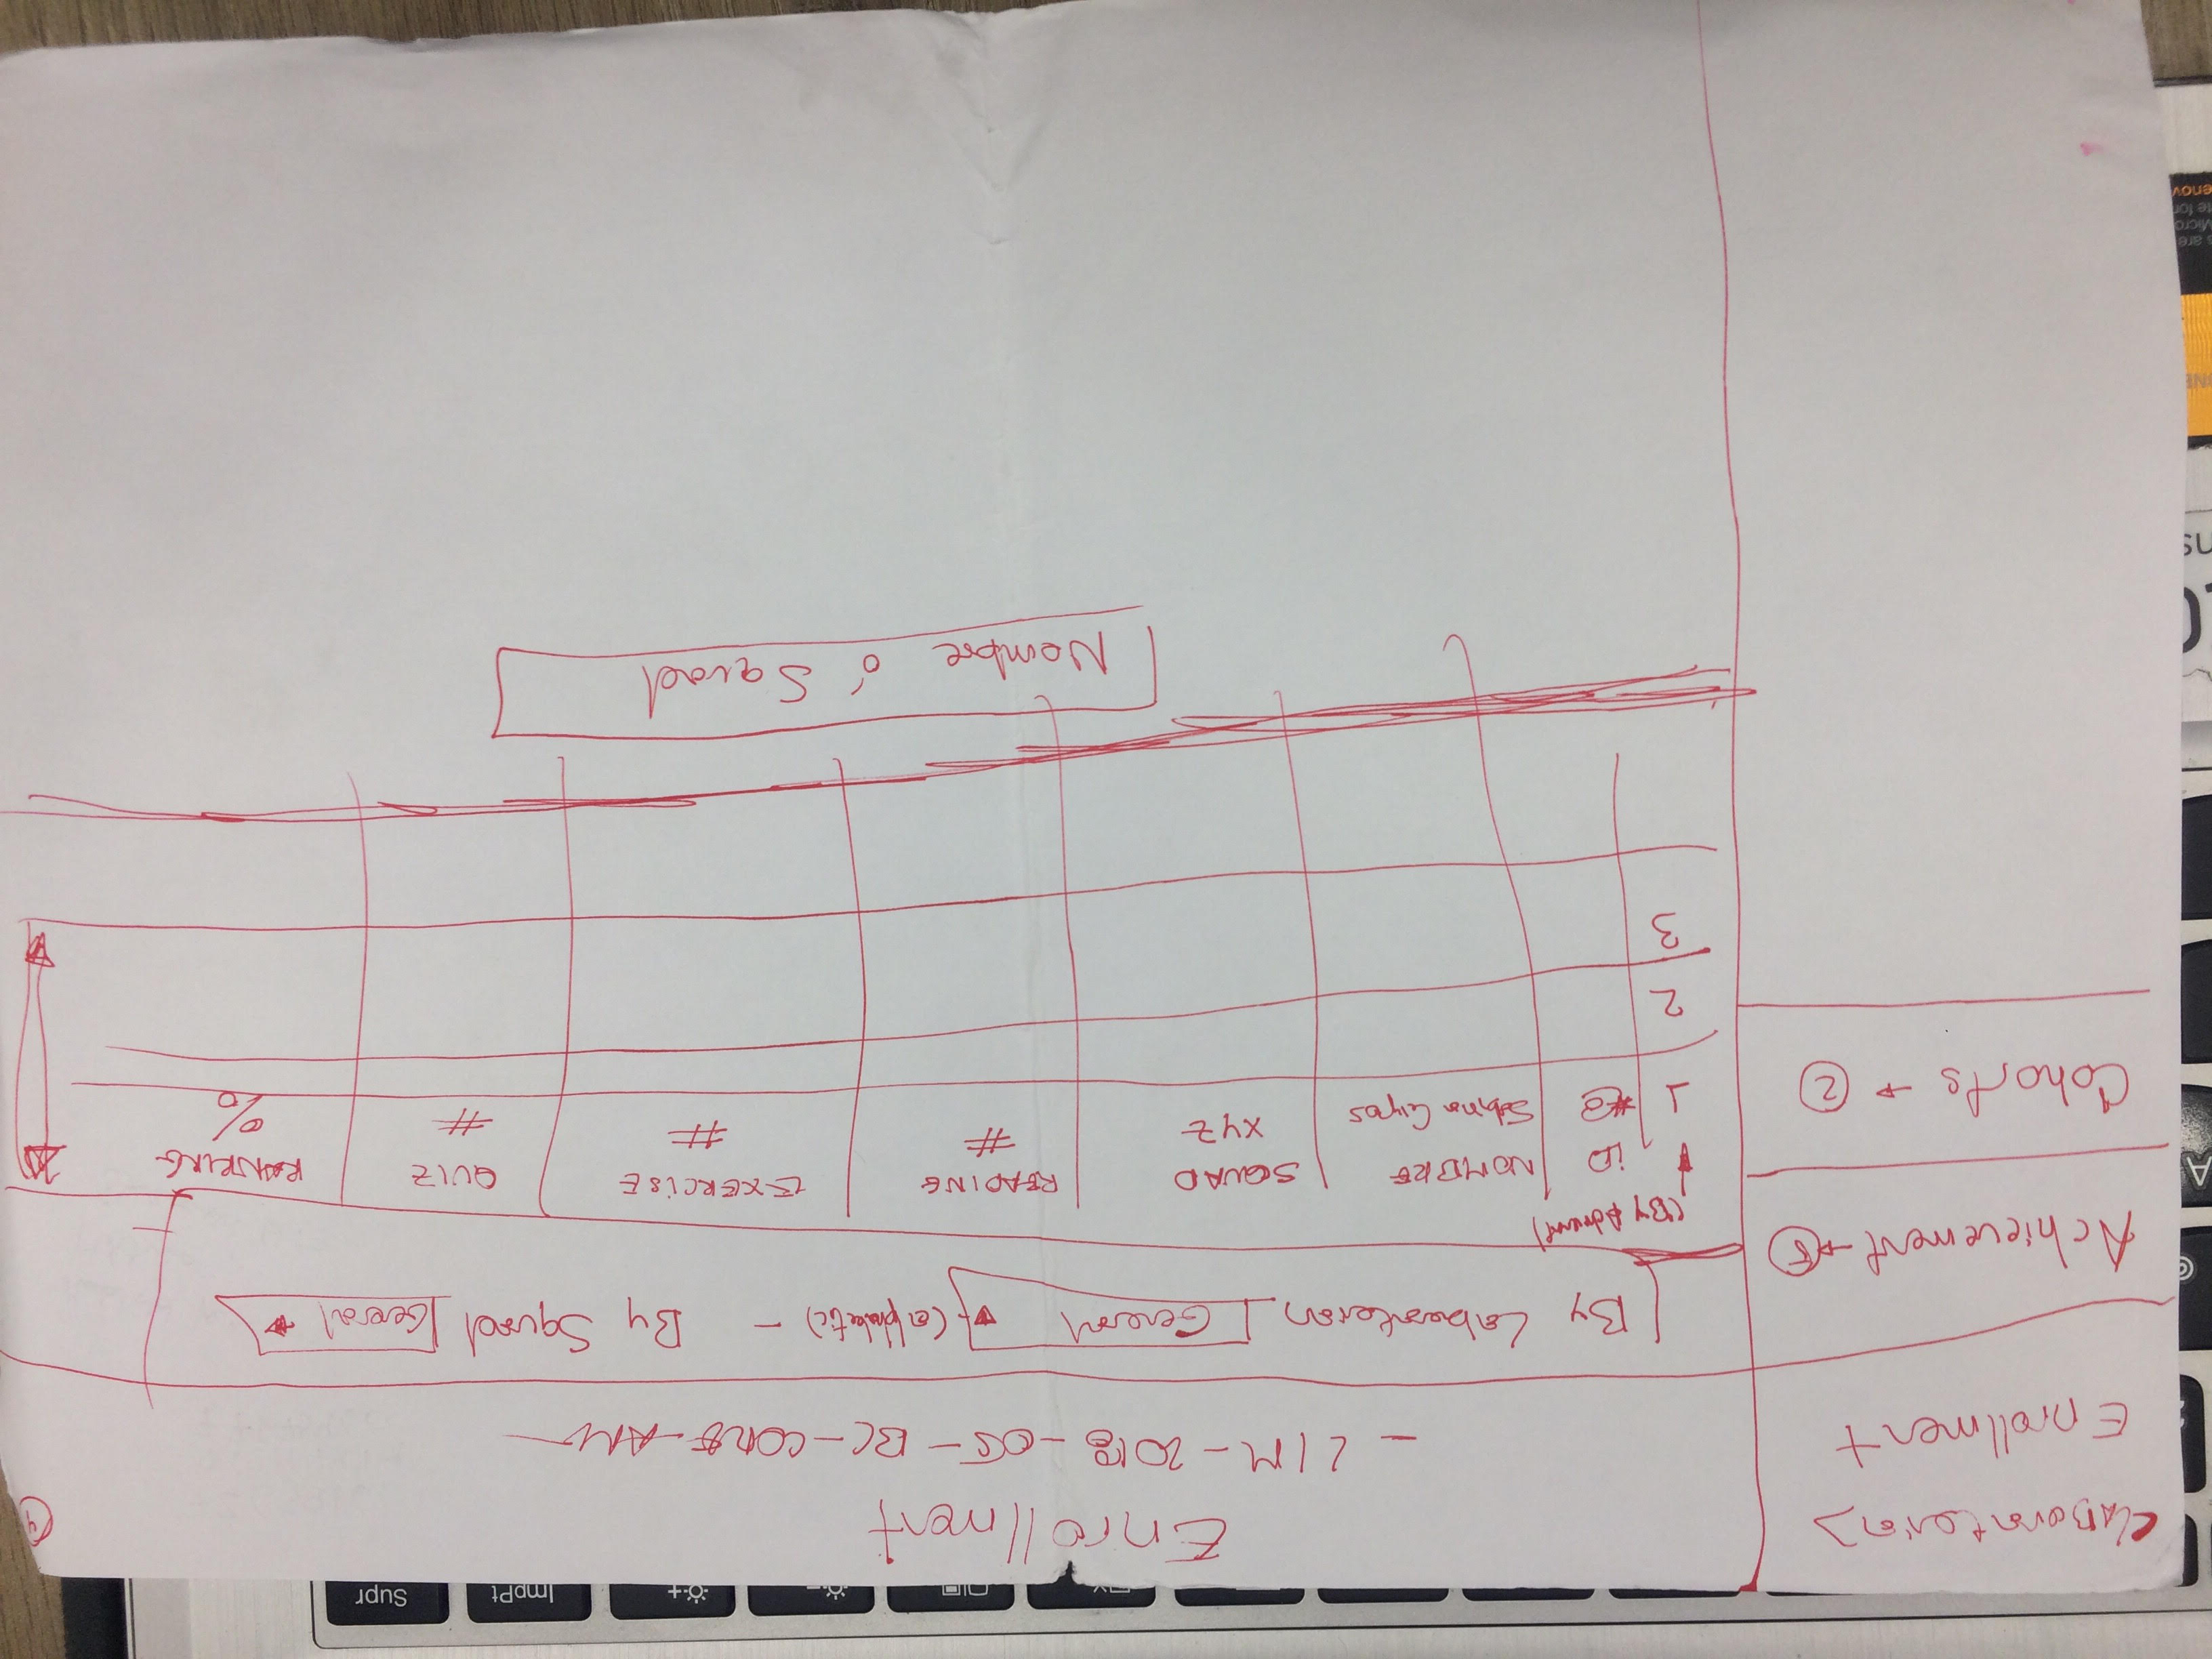 ImpPt Supr
<LABoratoria>
Enrollment
Achievement → 5
Cohorts → 2
Enrollment
4
- LIM-2018-05-BC-CORE-AM
By Laboratorian General (alphabetic) - By Squad General
(By
ID NOMBRE SQUAD READING EXERCISE QUIZ RANKING
1 Sabina XYZ # # # %
2
3
Nombre ó Squad